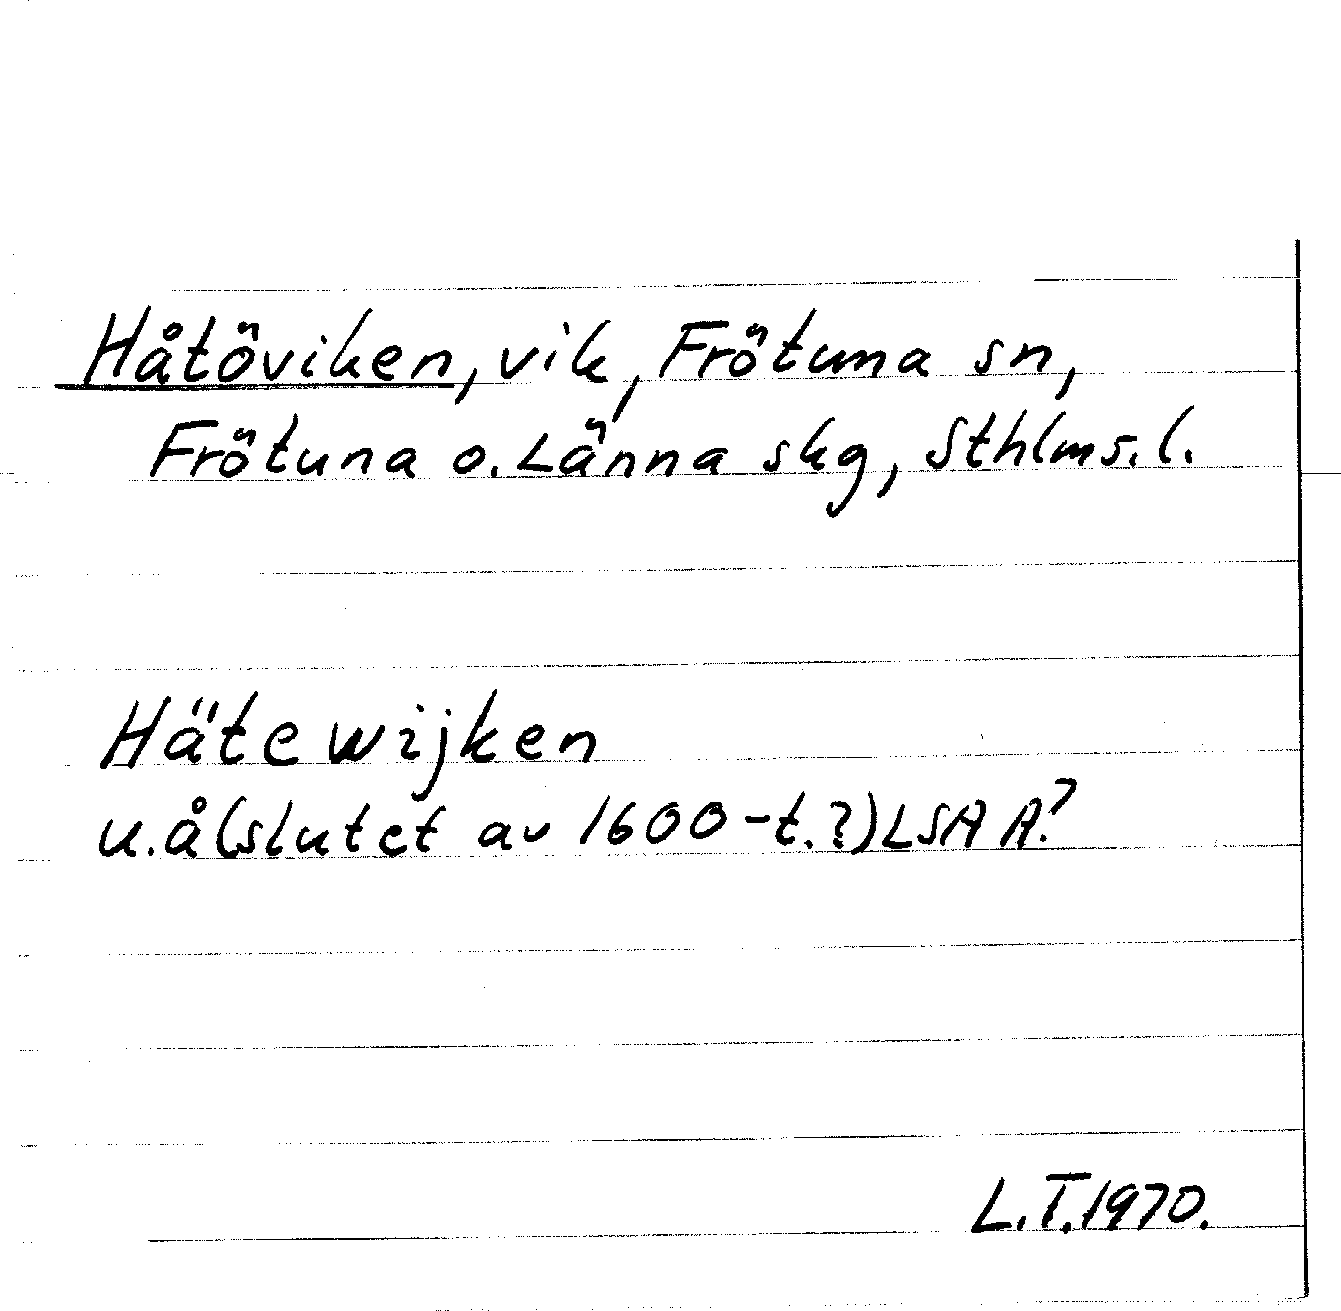 Håtöviken, vik, Frötuna sn,
Frötuna o. Länna skg, Sthlms. l.
Hätewijken
u.å (slutet av 1600-t.?) LSA A?
L.T. 1970.